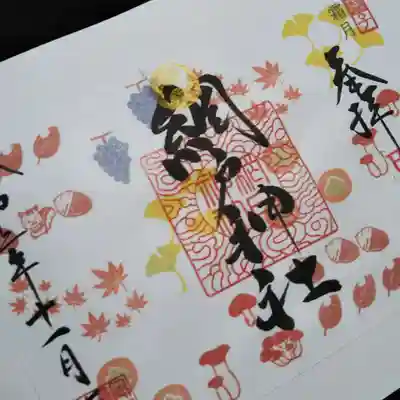 霜月
奉拝
網戸神社
年十一月